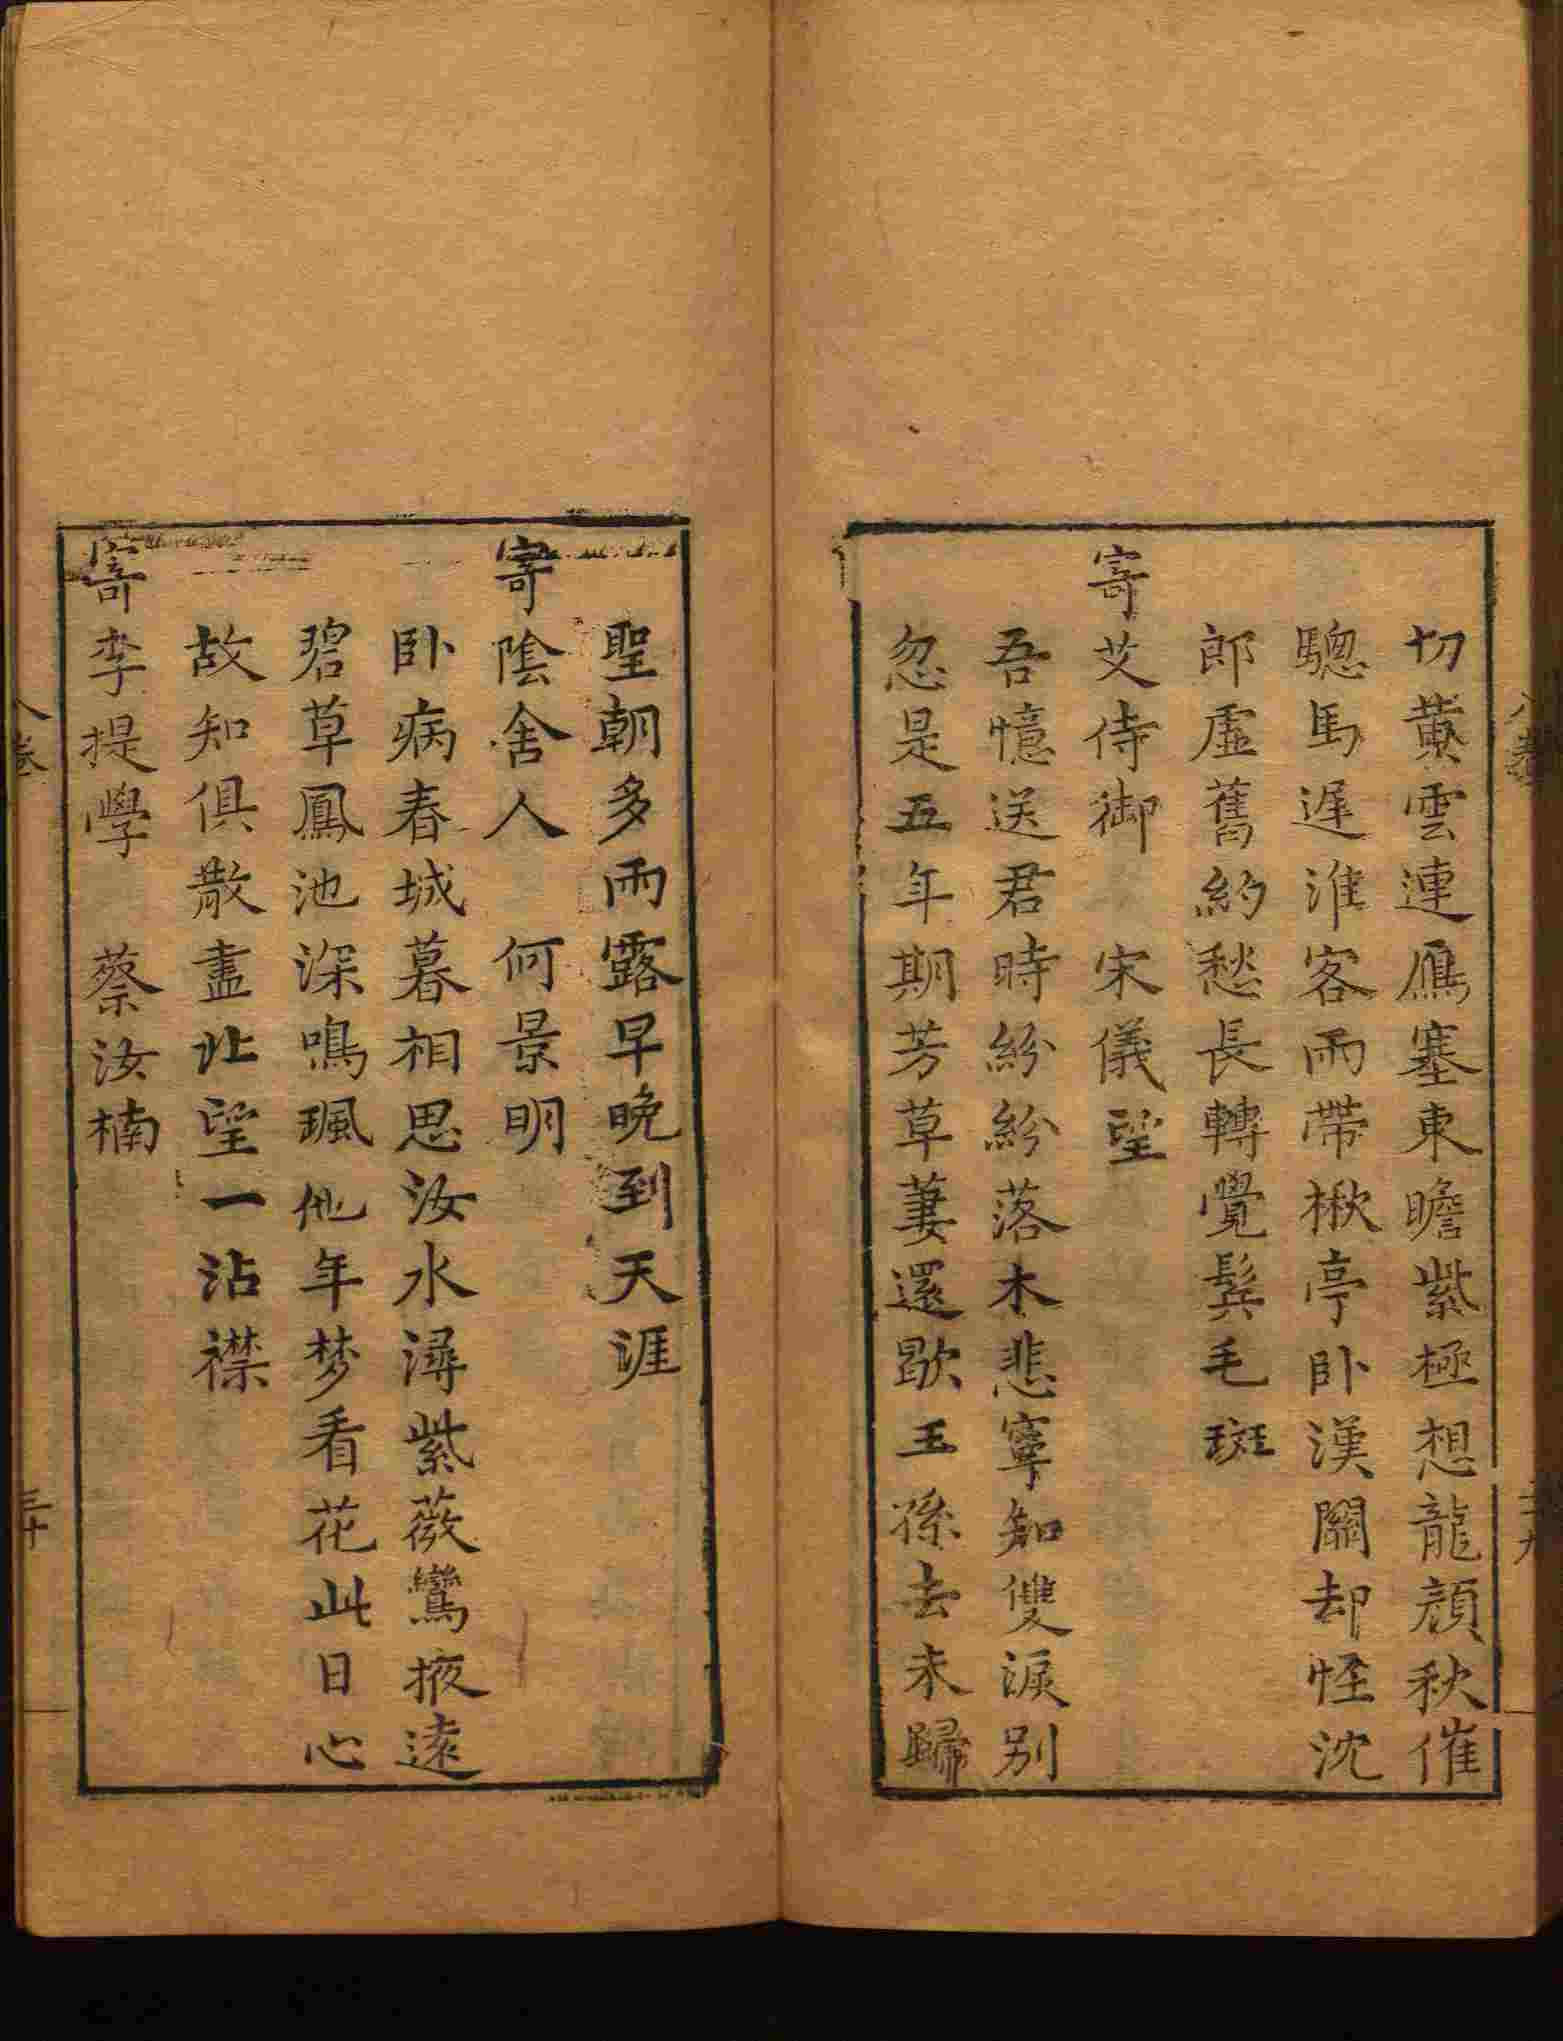 切黄雲連鴈塞東瞻紫極想龍顔秋催
驄馬遲淮客雨帶楸亭卧漢關却怪沈
郎虛舊約愁長轉覺鬂毛斑
寄艾侍御　宋儀望
吾憶送君時紛紛落木悲寧知雙淚別
忽是五年期芳草萋還歇王孫去未歸
聖朝多雨露早晚到天涯
寄陰舍人　何景明
卧病春城暮相思汝水潯紫薇鸞掖遠
碧草鳳池深鳴珮他年梦看花此日心
故知俱散盡北望一沾襟
寄李提學　蔡汝楠
八卷
三十